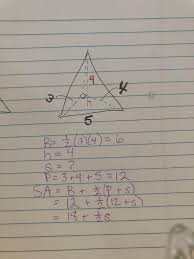 4
3 4
5
B=½(3)(4)=6
h=4
s=?
P=3+4+5=12
SA=B+½(P+s)
=12+½(12+s)
=18+½s